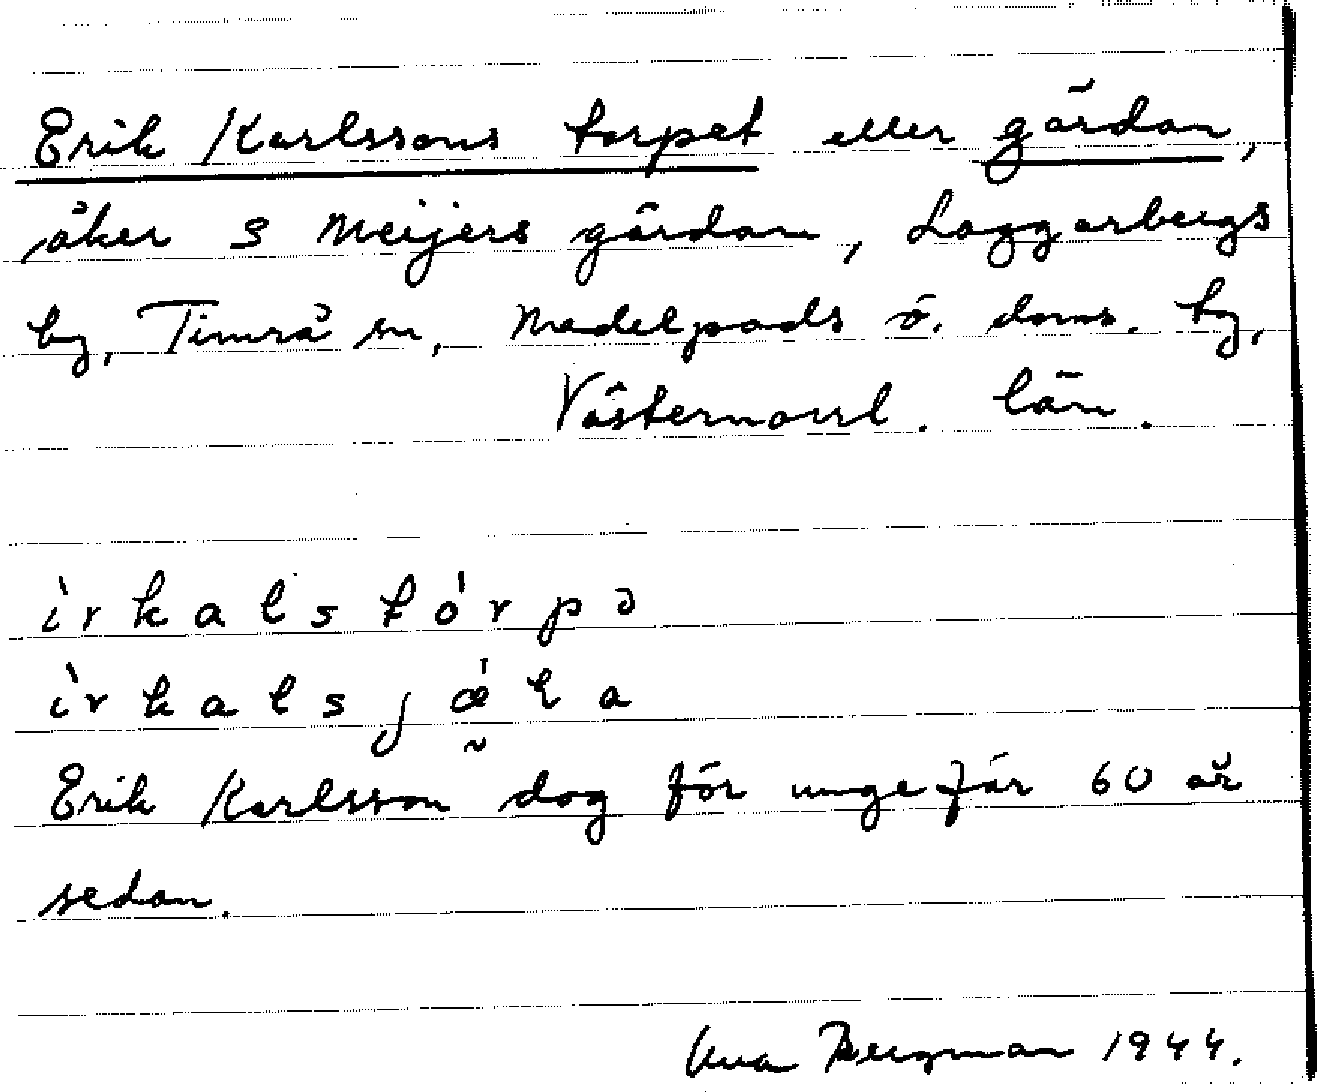 Erik Karlssons torpet eller gärdan,
åker S Meijers gärdan, Laggarbergs
by, Timrå sn, Medelpads ö. doms. by,
Västernorrl. län.
ìrkalstórpə
ìrkalsjǽɽa
Erik Karlsson dog för ungefär 60 år
sedan.
Bergman 1944.